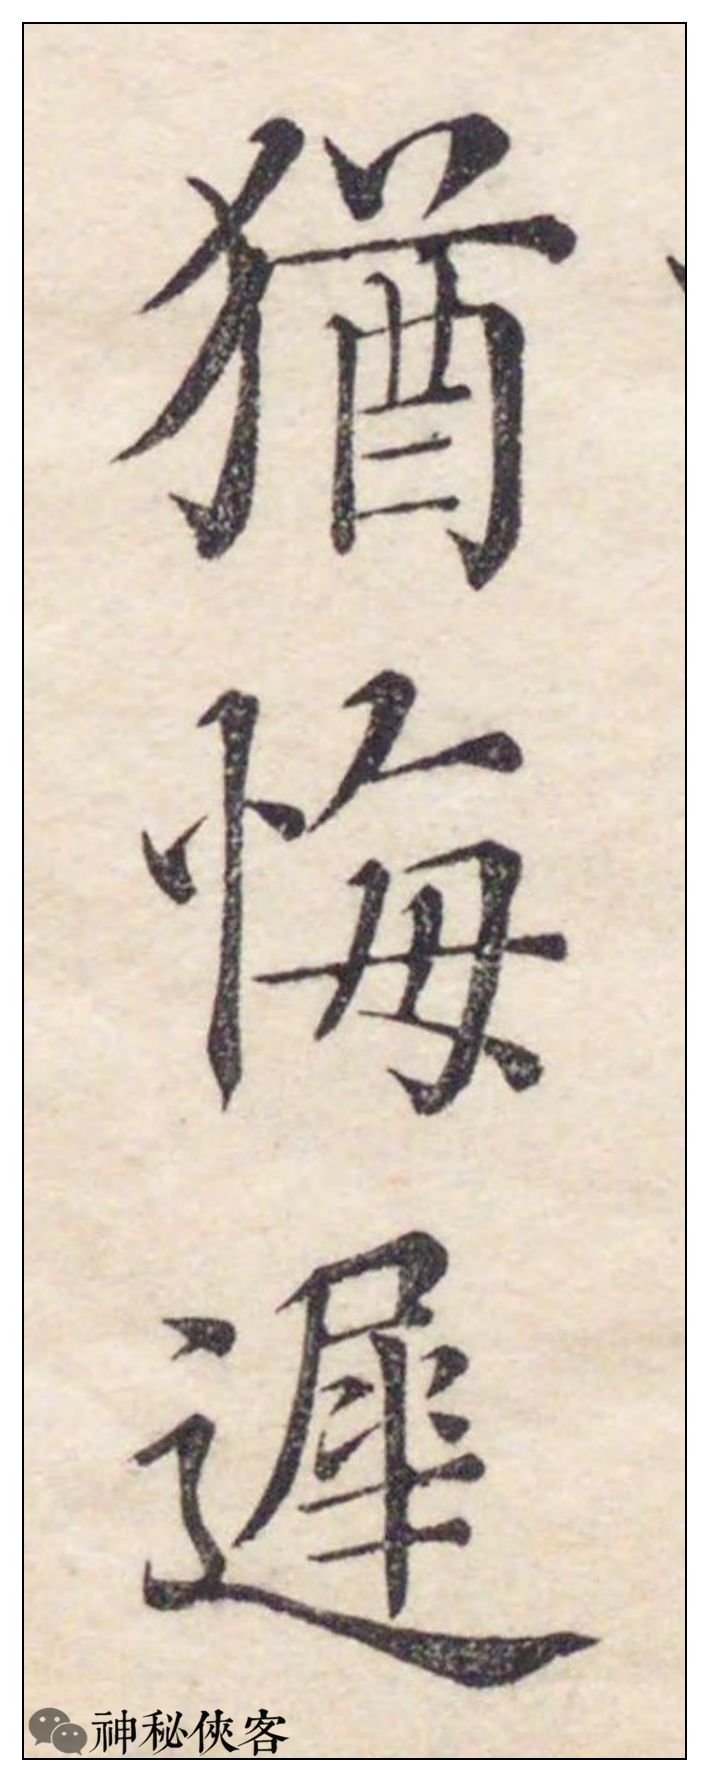 猶悔遲
神秘俠客